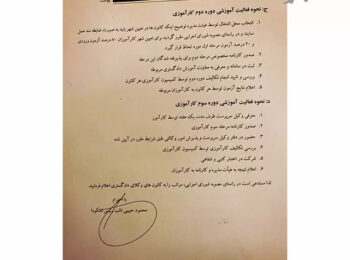 ج: نحوه فعالیت آموزشی دوره دوم کارآموزی
۱. انتخاب محل اشتغال توسط هیات مدیره توضیح اینکه کانون ها در تعیین شهر باید به صورت ضابطه مند عمل
نمایند و در راستای مصوبه شورای اجرایی مقرر گردید برای تعیین شهر کارآموزان ۸۰ درصد آزمون ورودی
و ۲۰ درصد آزمون مرحله اول مورد لحاظ قرار گیرد.
۲. صدور کارنامه مخصوص مرحله دوم برای پذیرفته شدگان این مرحله
۳. ثبت در سامانه و معرفی به معاونت آموزش دادگستری مربوطه
۴. بررسی و تایید انجام تکالیف دوره دوم توسط کمیسیون کارآموزی هر کانون
۵. اعلام نتایج آزمون توسط هر کانون به کارآموزان مربوطه
د: نحوه فعالیت آموزشی دوره سوم کارآموزی
۱. صدور کارنامه مرحله سوم کارآموزی
۲. معرفی وکیل سرپرست ظرف مدت یک هفته توسط کارآموز
۳. حضور در دفتر وکیل سرپرست و پذیرش امور وکالتی طبق شرایط مقرر در آیین نامه
۴. بررسی تکالیف کارآموزی توسط کمیسیون کارآموزی
۵. شرکت در اختبار کتبی و شفاهی
۶. اعلام نتیجه به هیأت مدیره و کارنامه به کارآموزان
لذا مستدعی است در راستای مصوبه شورای اجرایی، مراتب را به کانون های وکلای دادگستری اعلام فرمایید.
با احترام
محمود حبیبی نائب رئیس اسکودا